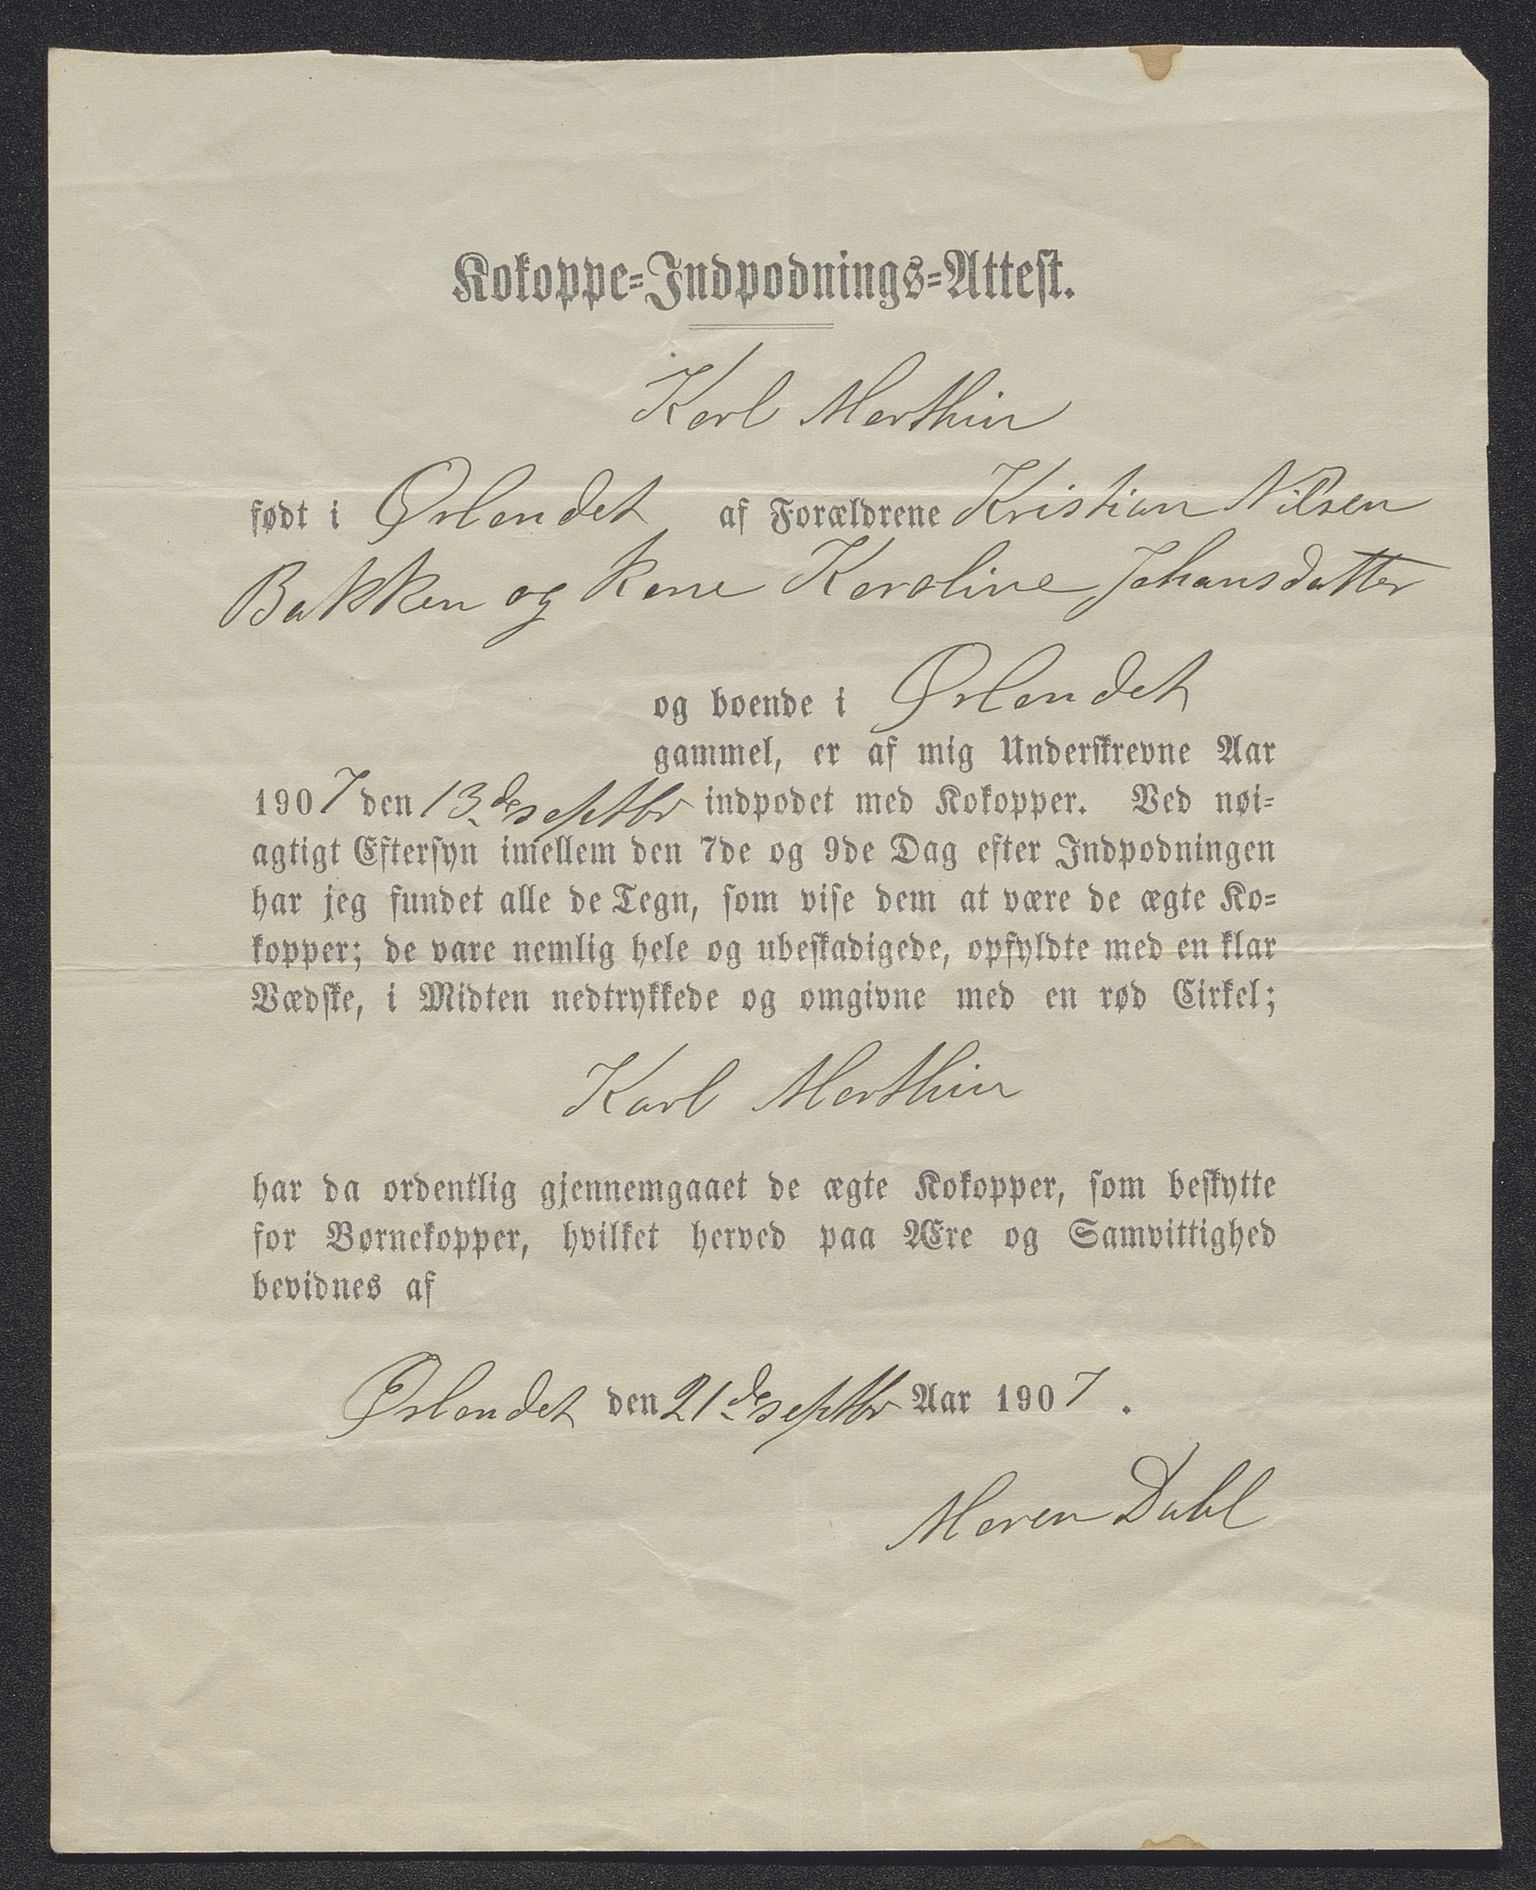 Kokoppe-Indpodnings-Attest.
Karl Marthin
født i Ørlandet af Forældrene Kristian Nilsen
Bakken og kone Karoline Johansdatter
og boende i Ørlandet
gammel, er af mig Underskrevne Aar
1907 den 13de septbr indpodet med Kokopper. Ved nøi-
agtigt Eftersyn imellem den 7de og 9de Dag efter Indpodningen
har jeg fundet alle de Tegn, som vise dem at være de ægte Ko-
kopper; de vare nemlig hele og ubeskadigede, opfyldte med en klar
Vædske, i Midten nedtrykkede og omgivne med en rød Cirkel;
Karl Marthin
har da ordentlig gjennemgaaet de ægte Kokopper, som beskytte
for Børnekopper, hvilket herved paa Ære og Samvittighed
bevidnes af
Ørlandet den 21de septbr Aar 1907.
Maren Dahl